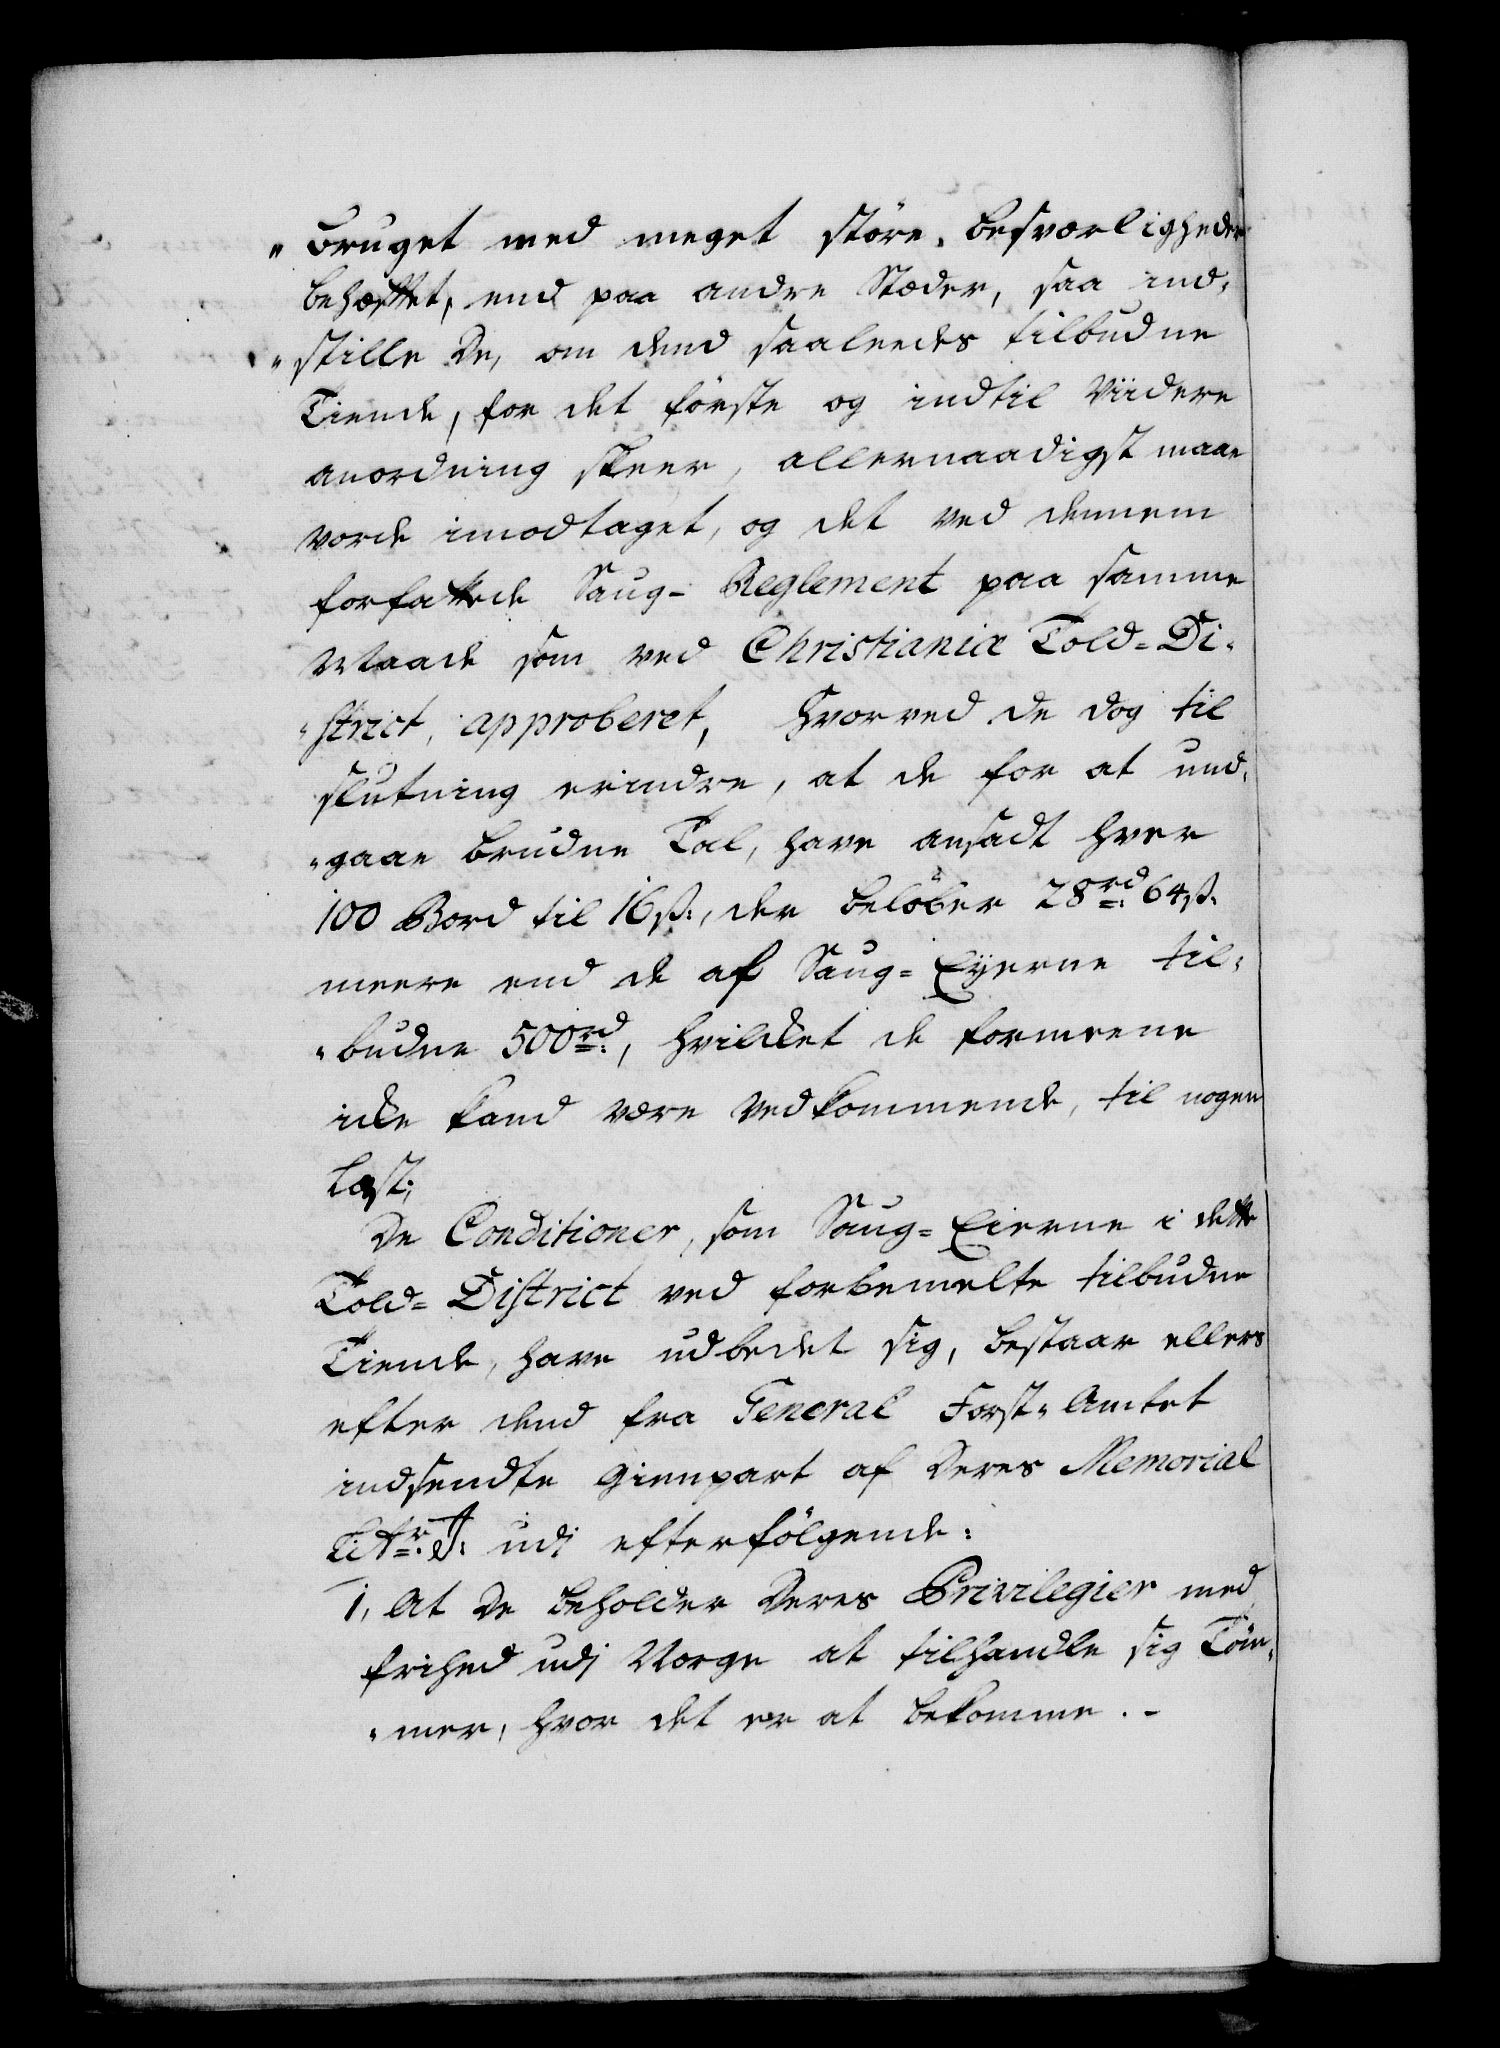 "Bruget med meget störe, besværligheder
behæftet, end paa andre Stæder, saa ind„
„stille De, om dend saaleedes tilbudne
Tiende, for det förste og indtil Viidere
anordning skeer, allernaadigst maae
vorde imodtaget, og det ved dennem
forfattede Saug- Reglement paa samme
Maade som ved Christianiæ Told=Di„
„strict, approberet, hvorved de dog til
slutning erindre, at de for at und„
„gaae brudne Tal, have ansadt hver
100 Bord til 16 ß:, der belöber 28 rd: 64 ß:
meere end de af Saug=Eyerne til„
„budne 500 rd:, hvilket de formeene
icke kand være Vedkommende, til nogen
Last;
De Conditioner, som Saug=Eierne i dette
Told=District ved forbemelte tilbudne
Tiende, have udbedet sig, bestaar ellers
efter dend fra General Forst„Amtet
indsendte Gienpart af Deres Memorial
Litr. J: udj efterfölgende:
1, At De beholder Deres Privilegier med
frihed udj Norge at tilhandle sig Töm„
„mer, hvor det er at bekomme.-